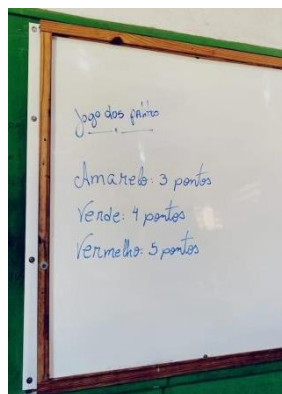 Jogo dos
Amarelo: 3 pontos
Verde: 4 pontos
Vermelho: 5 pontos